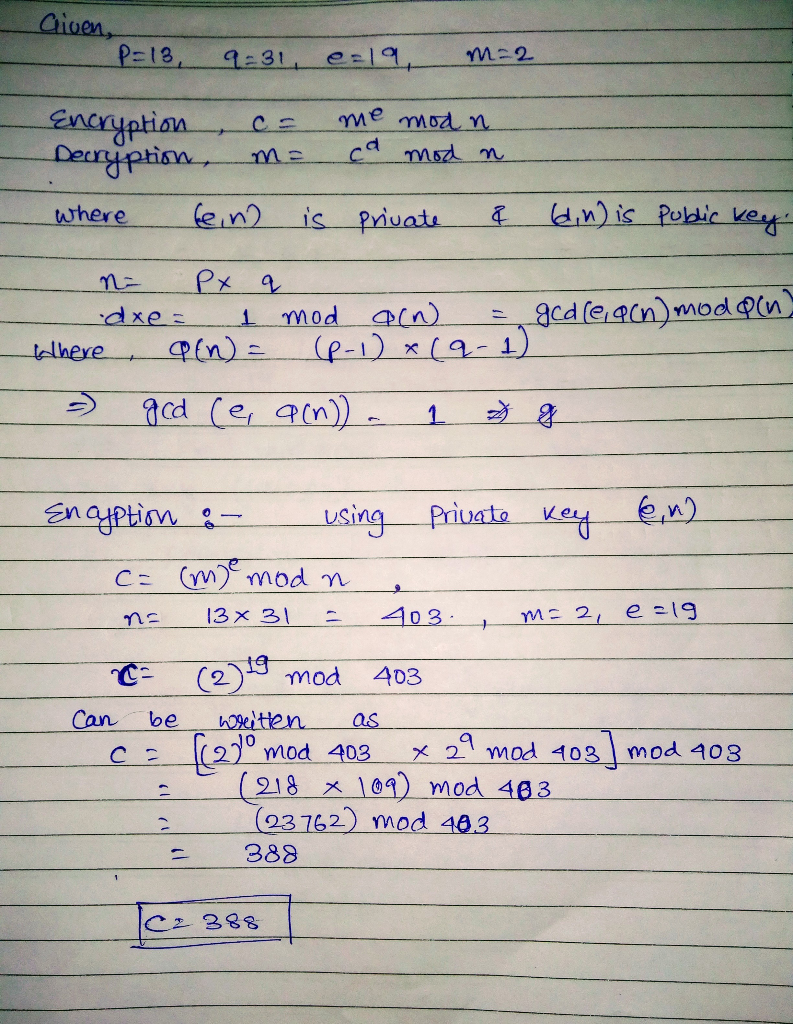 Given,
P=13, q=31, e=19, m=2
Encryption, c = m^e mod n
Decryption, m = c^d mod n
where (e,n) is private & (d,n) is Public key.
n = P x q
d x e = 1 mod φ(n) = gcd(e,φ(n)) mod φ(n)
where, φ(n) = (p-1) x (q-1)
⇒ gcd (e, φ(n)) = 1
Encryption :- using Private key (e,n)
C = (m)^e mod n,
n = 13 x 31 = 403. , m = 2, e = 19
C = (2)^19 mod 403
Can be written as
C = [(2)^10 mod 403 x 2^9 mod 403] mod 403
= (218 x 109) mod 403
= (23762) mod 403
= 388
C = 388